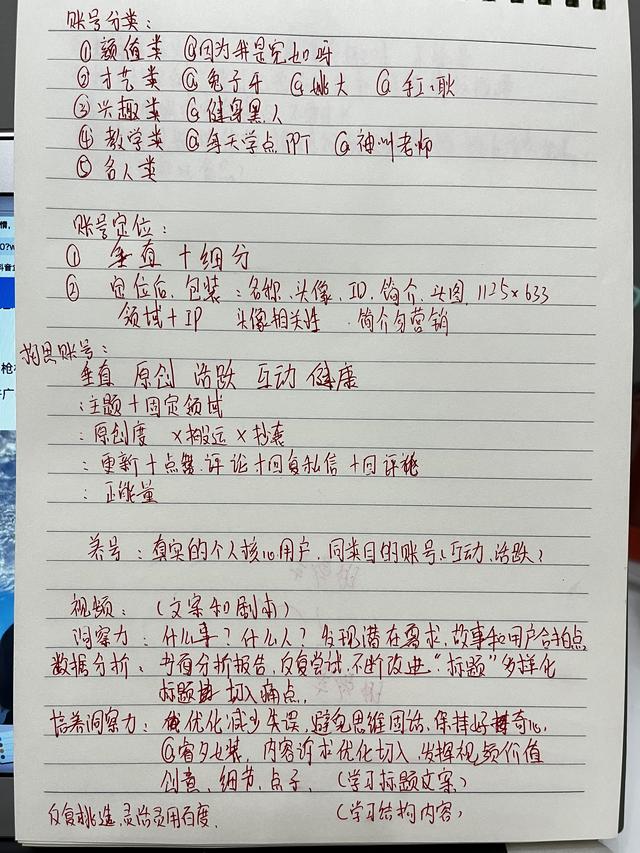 账号分类：
① 颜值类 @因为我是宅如呀
② 才艺类 @兔子牙 @姚大 @手工耿
③ 兴趣类 @健身黑人
④ 教学类 @每天学点PPT @神叫老师
⑤ 名人类
账号定位：
① 垂直 + 细分
② 定位后、包装：名称、头像、ID、简介、头图 1125×633
领域+IP 头像相关性 简介勿营销
构思账号：
垂直 原创 活跃 互动 健康
：主题+固定领域
：原创度 ×搬运 ×抄袭
：更新+点赞、评论+回复私信+回评
：正能量
养号：真实的个人核心用户、同类目的账号（互动、活跃）
视频：（文案和剧南）
洞察力：什么事？什么人？发现潜在需求，故事和用户合拍点
数据分析、书面分析报告，反复尝试，不断改进“标题”多样化
标题 切入痛点，
培养洞察力： 优化减少失误，避免思维固话、保持好奇心，
@省夕 装，内容诉求优化切入，发挥视频价值
创意、细节、点子、（学习标题文案）
反复挑选，灵活灵用百度、（学习结构内容）